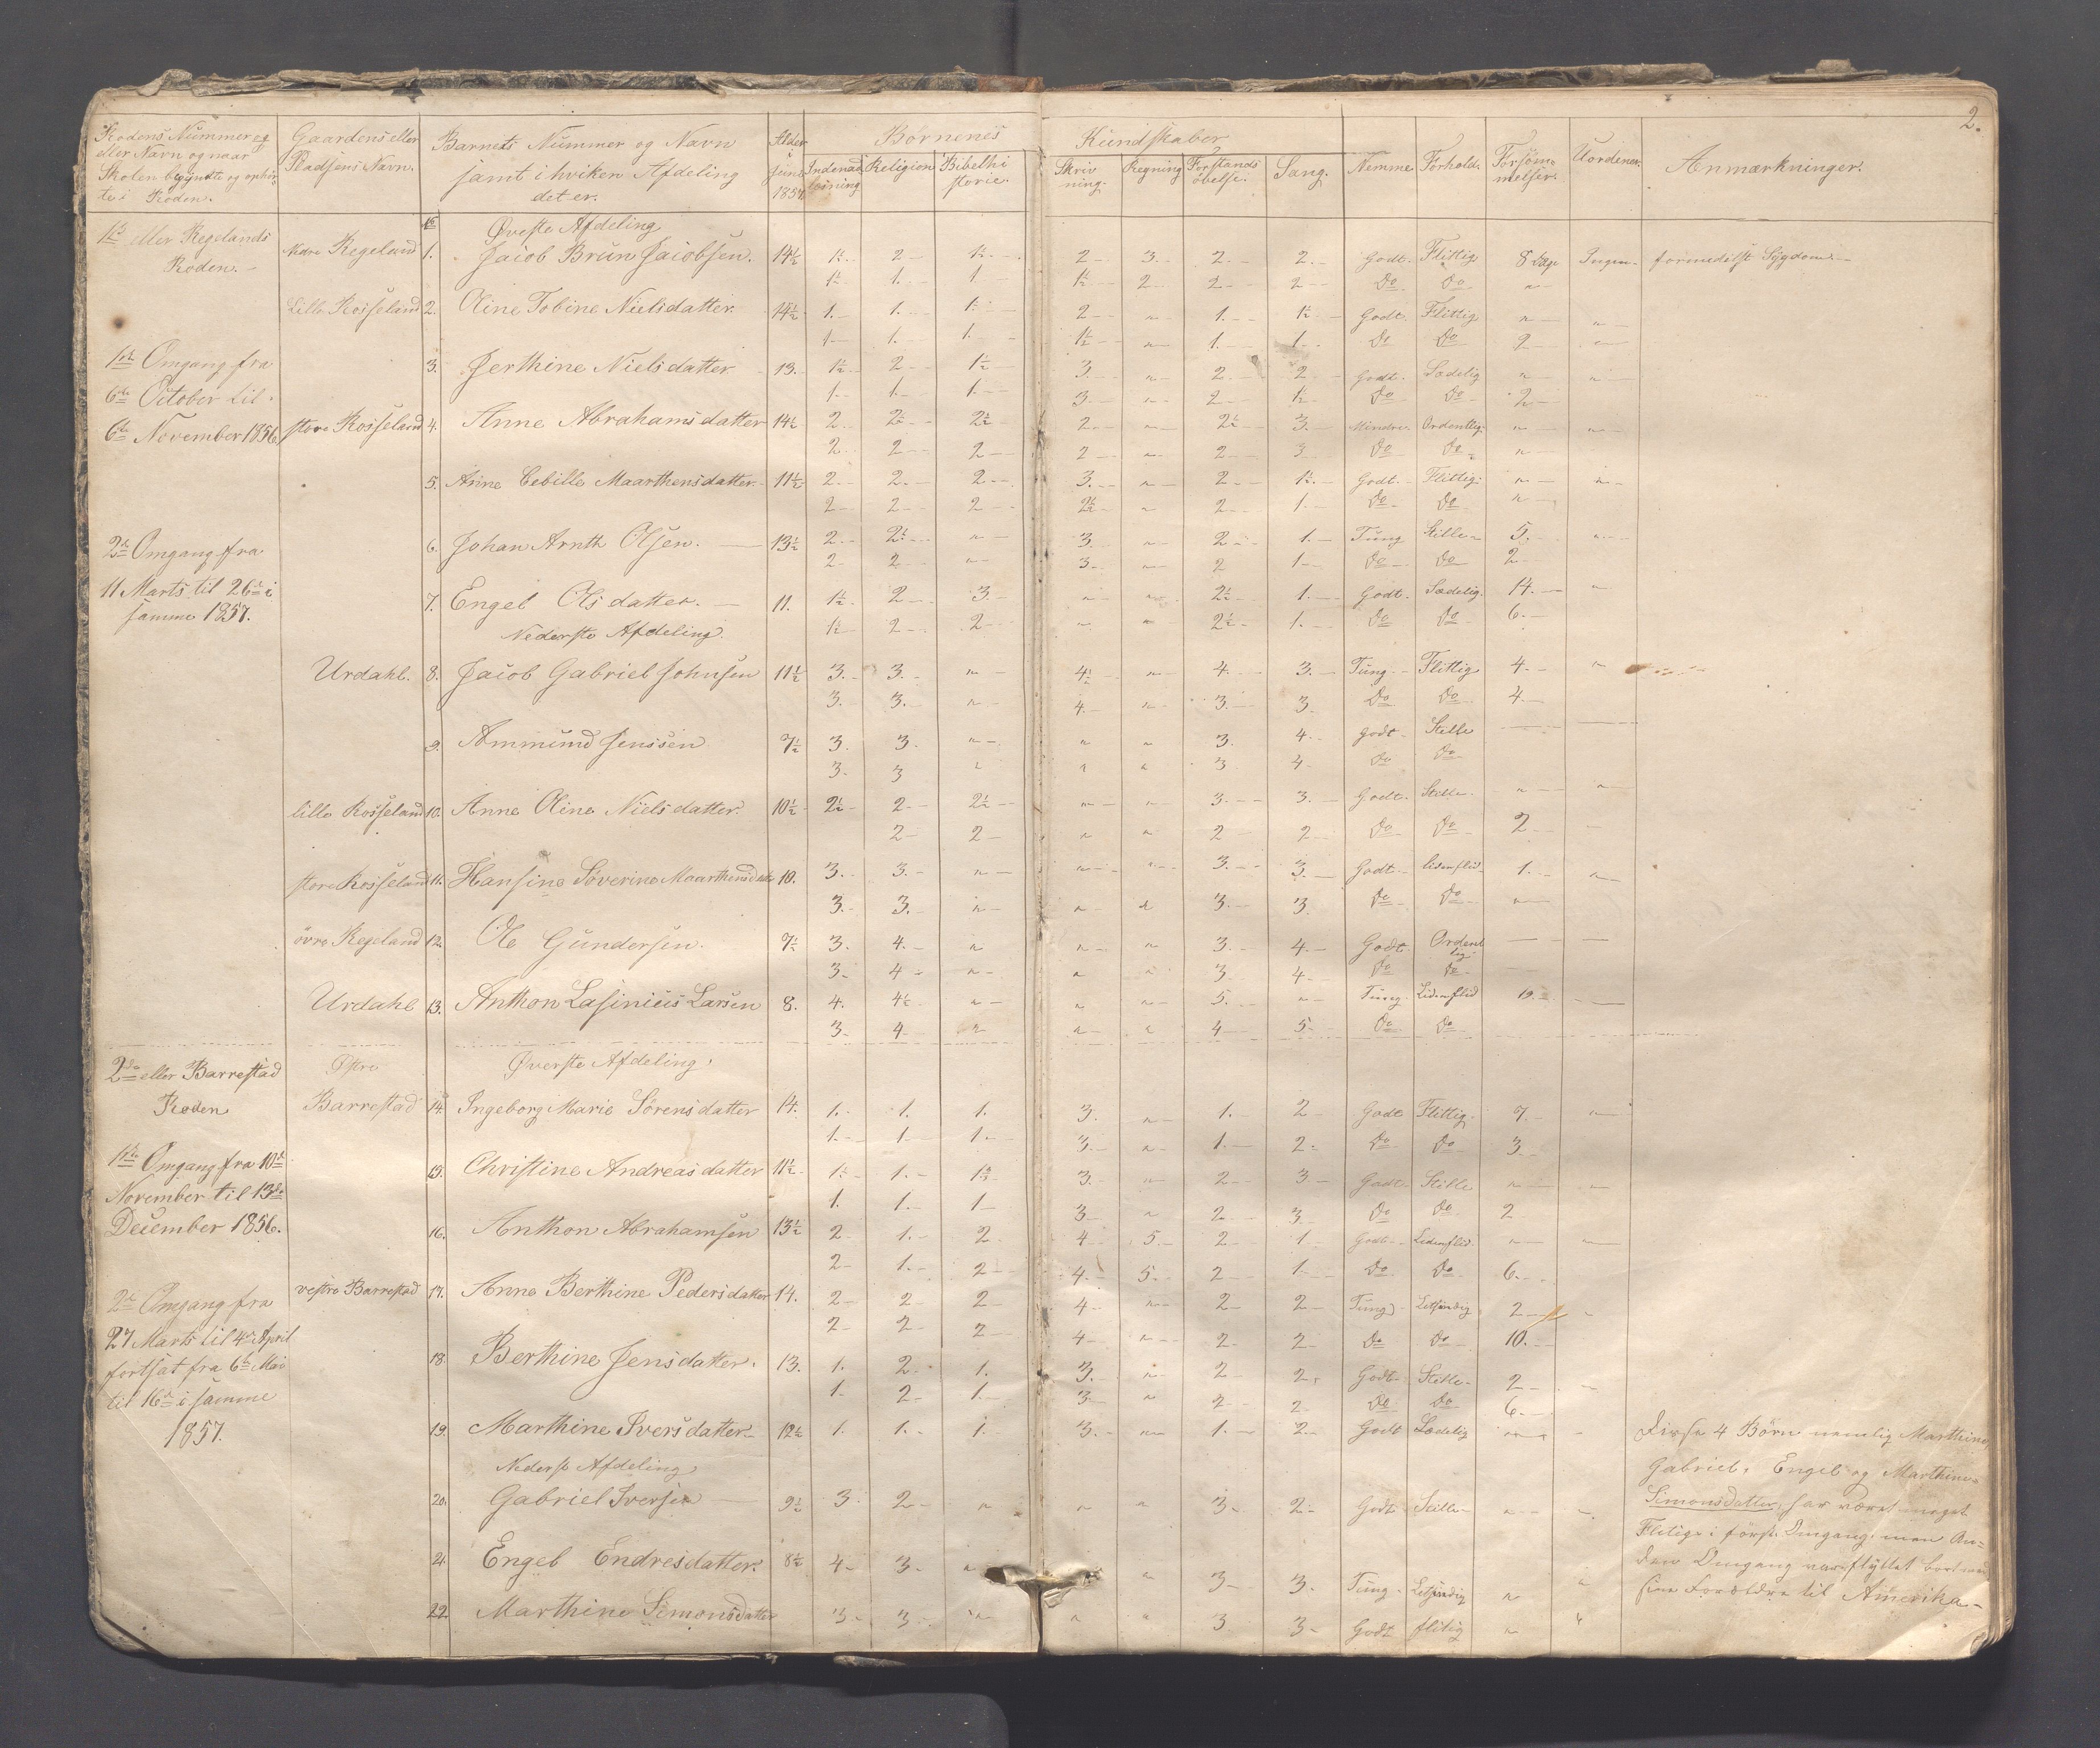 2.
Rodens Nummer og
eller Navn og naar
Skolen begyndte og ophör-
te i Roden.
Gaardens eller
Pladsens Navn.
Barnets Nummer og Navn
samt i hviken Afdeling
det er.
Alder
i
Juni
1857
Börnenes Kundskaber
Indenad
læsning
Religion
Bibelhi
storie.
Skriv
ning.
Regning
Forstands
öbelse.
Sang.
Nemme
Forhold.
Forsöm-
melser.
Uordener.
Anmærkninger.
1ste eller Regelands
Roden.
Øverste Afdeling
Nedre Regeland 1. Jacob Brun Jacobsen. 14½ 1½ 2 1½ 2 3. 2 2. Godt. Flittig 8 Dage Ingen formedelst Sygdom.
1½ 1. 1 1½ 2 2 2 Do Do "
Lille Rosseland 2. Oline Tobine Nielsdatter. 14½ 1. 1. 1½ 2 " 1. 1½ Godt. Flittig " "
1 1. 1. 1½ " 1. 1. Do Do 2 "
1ste Omgang fra
6te October til
6te November 1856
3. Jerthine Nielsdatter 13. 1½ 2 1½ 3. " 2 2 Godt. Sædelig " "
1. 1. 1. 3. " 2 1½ Do Do 2
store Rosseland 4. Anne Abrahamsdatter 14½ 2. 2½ 2½ 2. " 2½ 3. Mindre. Ordentlig " "
2. 2 2 2 " 2 3 Do Do "
5. Anne Cebille Maarthensdatter 11½ 2 2. 2 3. " 2 1½ Godt. Flittig " "
2 2 2 2½ " 2 1. Do Do "
2de Omgang fra
11 Marts til 26de i
samme 1857.
6. Johan Arnth Olsen. 13½ 2 2½ " 3. " 2 1. Tung Stille 5. "
2 2 " 3. " 2 1 Do Do 2
7. Engel Olsdatter. 11. 1½ 2 3. " " 2½ 1. Godt. Sædelig 14. "
1½ 2 2 " " 2½ 1. Do Do 6.
Nederste Afdeling.
Urdahl. 8. Jacob Gabriel Johnsen 11½ 3. 3. " 4½ " 4. 3. Tung Flittig 4. "
3. 3. " 4. " 3. 3. Do Do 4.
9. Ammund Jenssen 7½ 3. 3. " " " 3. 4. Godt Stille
3. 3 " " " 3 4 Do Do
lille Rosseland 10. Anne Oline Nielsdatter. 10½ 2½ 2 2½ " " 3. 3. Godt. Stille. " "
2 2 " " 2 2 Do Do 2
store Rosseland 11. Hansine Söverine Maarthensdatter 10. 3. 3. " " " 3. 3. Godt liden flid 1. "
3. 3. " " " 3. 3 Do Do "
övre Regeland 12. Ole Gundersen. 7½ 3. 4. " " " 3. 4. Godt Ordent
lig
3. 4 " " " 3 4 Do Do
Urdahl 13. Anthon Lasinius Larsen 8. 4. 4½ " " " 5. " Tung Liden flid 19.
3. 4 " " " 4 5 Do Do
2den eller Barrestad
Roden
Østre
Barrestad
Øverste Afdeling.
14. Ingeborg Marie Sörensdatter 14. 1. 1. 1. 3. " 1. 2 Godt Flittig 7. "
1. 1. 1. 3. " 1. 2. Do Do 3
1ste Omgang fra 10de
November til 13de
December 1856.
15. Christine Andreasdatter 11½ 1½ 1. 1½ 3. " 2 3 Godt Stille " "
1. 1. 1 3 " 2 3 Do Do 2
16. Anthon Abrahamsen 13½ 2 1. 2. 4 5. 2 1 Godt Liden flid. " "
2 1. 2 4. 5. 2 1. Do Do 6.
vestre Barrestad 17. Anne Berthine Pedersdatter 14. 2 2 2 4 " 2 2 Tung Letsindig 2
2 2 2 4 " 2 2 Do Do 10.
2de Omgang fra
27 Marts til 4de April
fortsat fra 6te Mai
til 16de i samme
1857.
18. Berthine Jensdatter. 13. 1. 2. 1. 3. " 2 2. Godt Stille 2
1. 2 1. 3. " 2 2 Do Do 6.
19. Marthine Iversdatter 12½ 1. 1. 1. 3. " 1. 2 Godt Sædelig "
Nederste Afdeling
20. Gabriel Iversen 9½ 3. 2 " " " 3 2 Godt Stille "
21. Engel Endresdatter. 8½ 4 3. " " 3 3. Tung Letsindig " "
22 Marthine Simonsdatter 3 3. " " " 3 3 Godt flitig " "
Disse 4 Börn nemlig Marthine,
Gabriel, Engel og Marthine
Simonsdatter, har været meget
Flitige i förste Omgang, men An-
den Omgang var flyttet bort med
sine Forældre til Amerika.